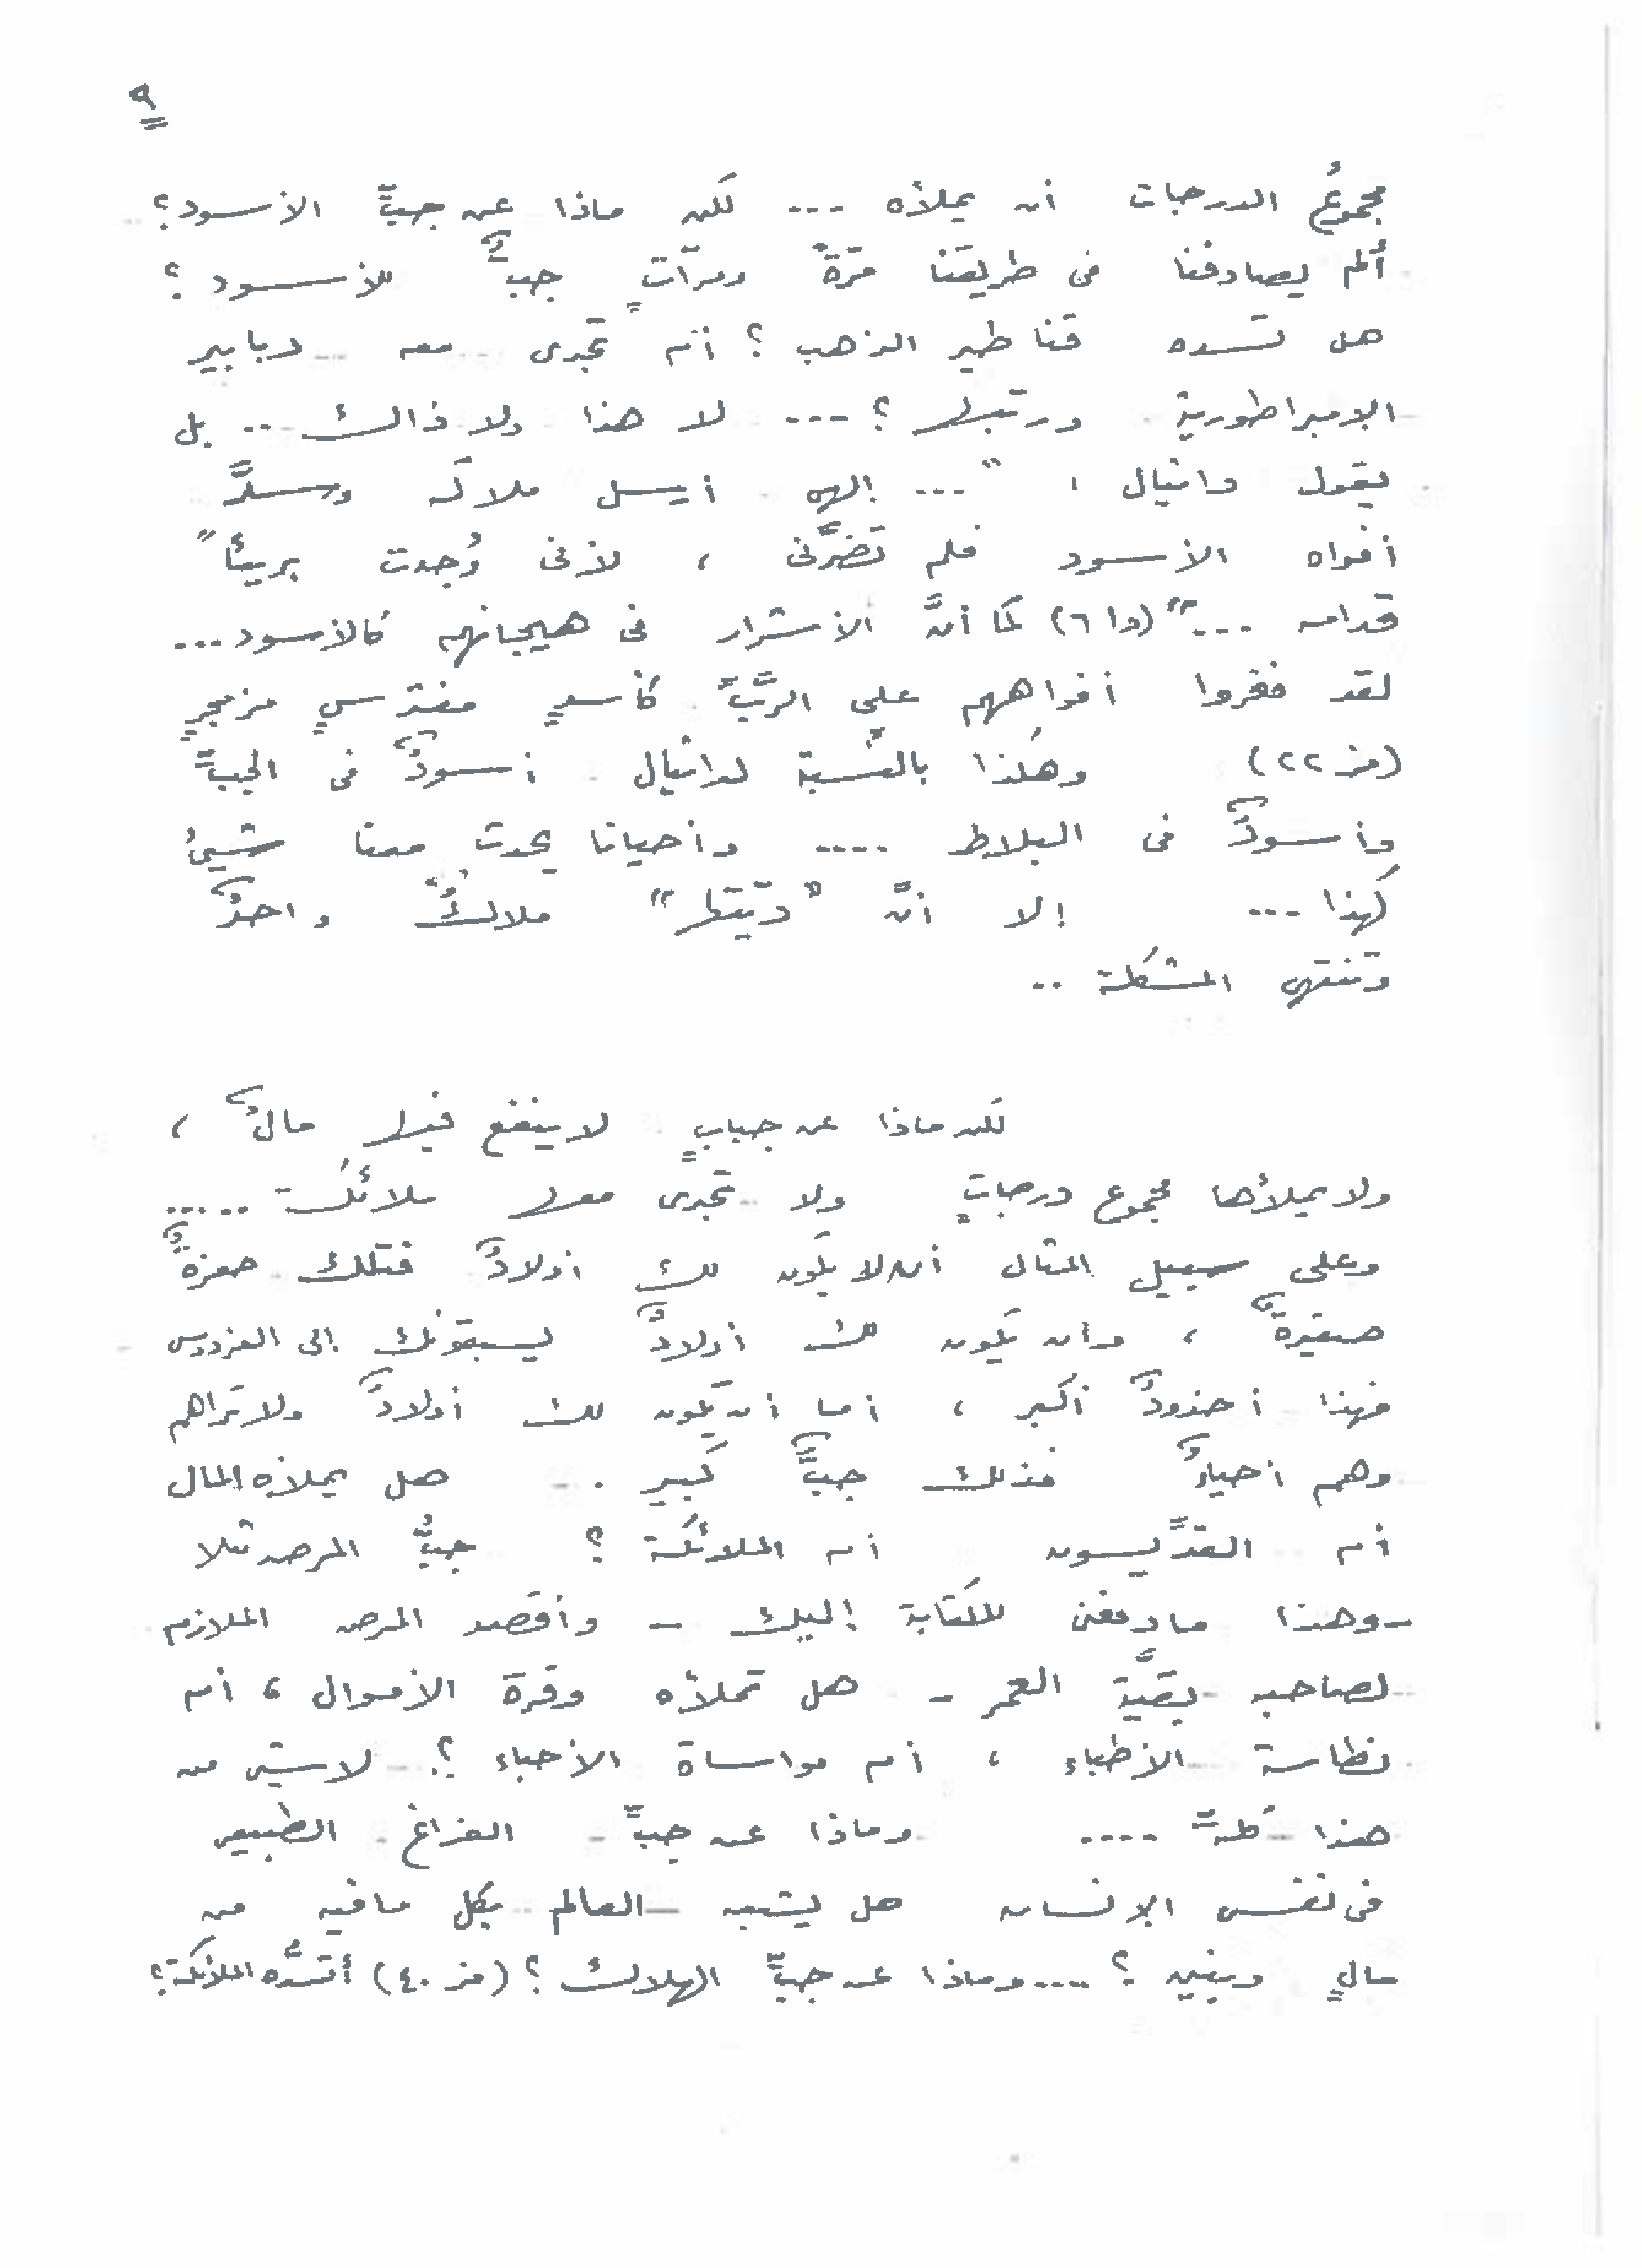 ٩
مجموعُ الدرجات أن يملأه ... لكن ماذا عن جبِّ الأسود؟
ألم يصادفنا في طريقنا مرّةً ومرّاتٍ جبٌّ للأسود ؟
هل تسده قناطير الذهب ؟ أم تجدى معه دبابير
الإمبراطورية ورتبها ؟ ... لا هذا ولا ذالك .. بل
يقول دانيال : " ... إلهى أرسل ملاكه وسدَّ
أفواه الأسود فلم تضرَّنى ، لأنى وُجدت بريئاً
قدامه ..." (دا ٦) كما أنَّ الأشرار فى هيجانهم كالأسود ...
لقد فغروا أفواههم على الربِّ كأسدٍ مفترسٍ مزمجرٍ
(مز ٢٢) وهكذا بالنسبة لدانيال أسودٌ فى الجبِّ
وأسودٌ فى البلاط .... وأحيانا يحدث معنا شيئٌ
كهذا ... إلا أنَّ "ديّتها" ملاكٌ واحدٌ
وتنتهى المشكلة ..
لكن ماذا عن جبابٍ لا ينفع فيها مالٌ ،
ولا يملأها مجموع درجاتٍ ولا تجدى معها ملائكة .....
وعلى سبيل المثال أن لا يكون لك أولادٌ فتلك حفرةٌ
صغيرةٌ ، وأن يكون لك أولادٌ يسبقونك إلى الفردوس
فهذا أخدودٌ أكبر ، أما أن يكون لك أولادٌ ولا تراهم
وهم أحياءٌ فذلك جبٌّ كبير . هل يملأه المال
أم القدّيسون أم الملائكة ؟ جبُّ المرض مثلا
- وهذا ما دفعنى للكتابة إليك - وأقصد المرض الملازم
لصاحبه بقيّة العمر - هل تملأه وفرة الأموال ، أم
نطاسة الأطباء ، أم مواساة الأحباء ؟ لا شئ من
هذا كلهِّ .... وماذا عن جبِّ الفراغ الطبيعى
فى نفس الإنسان هل يشبعه العالم بكل ما فيه من
مالٍ وبنين ؟ .... وماذا عن جبِّ الهلاك ؟ (مز ٤٠) أتسدُّه الملائكة؟